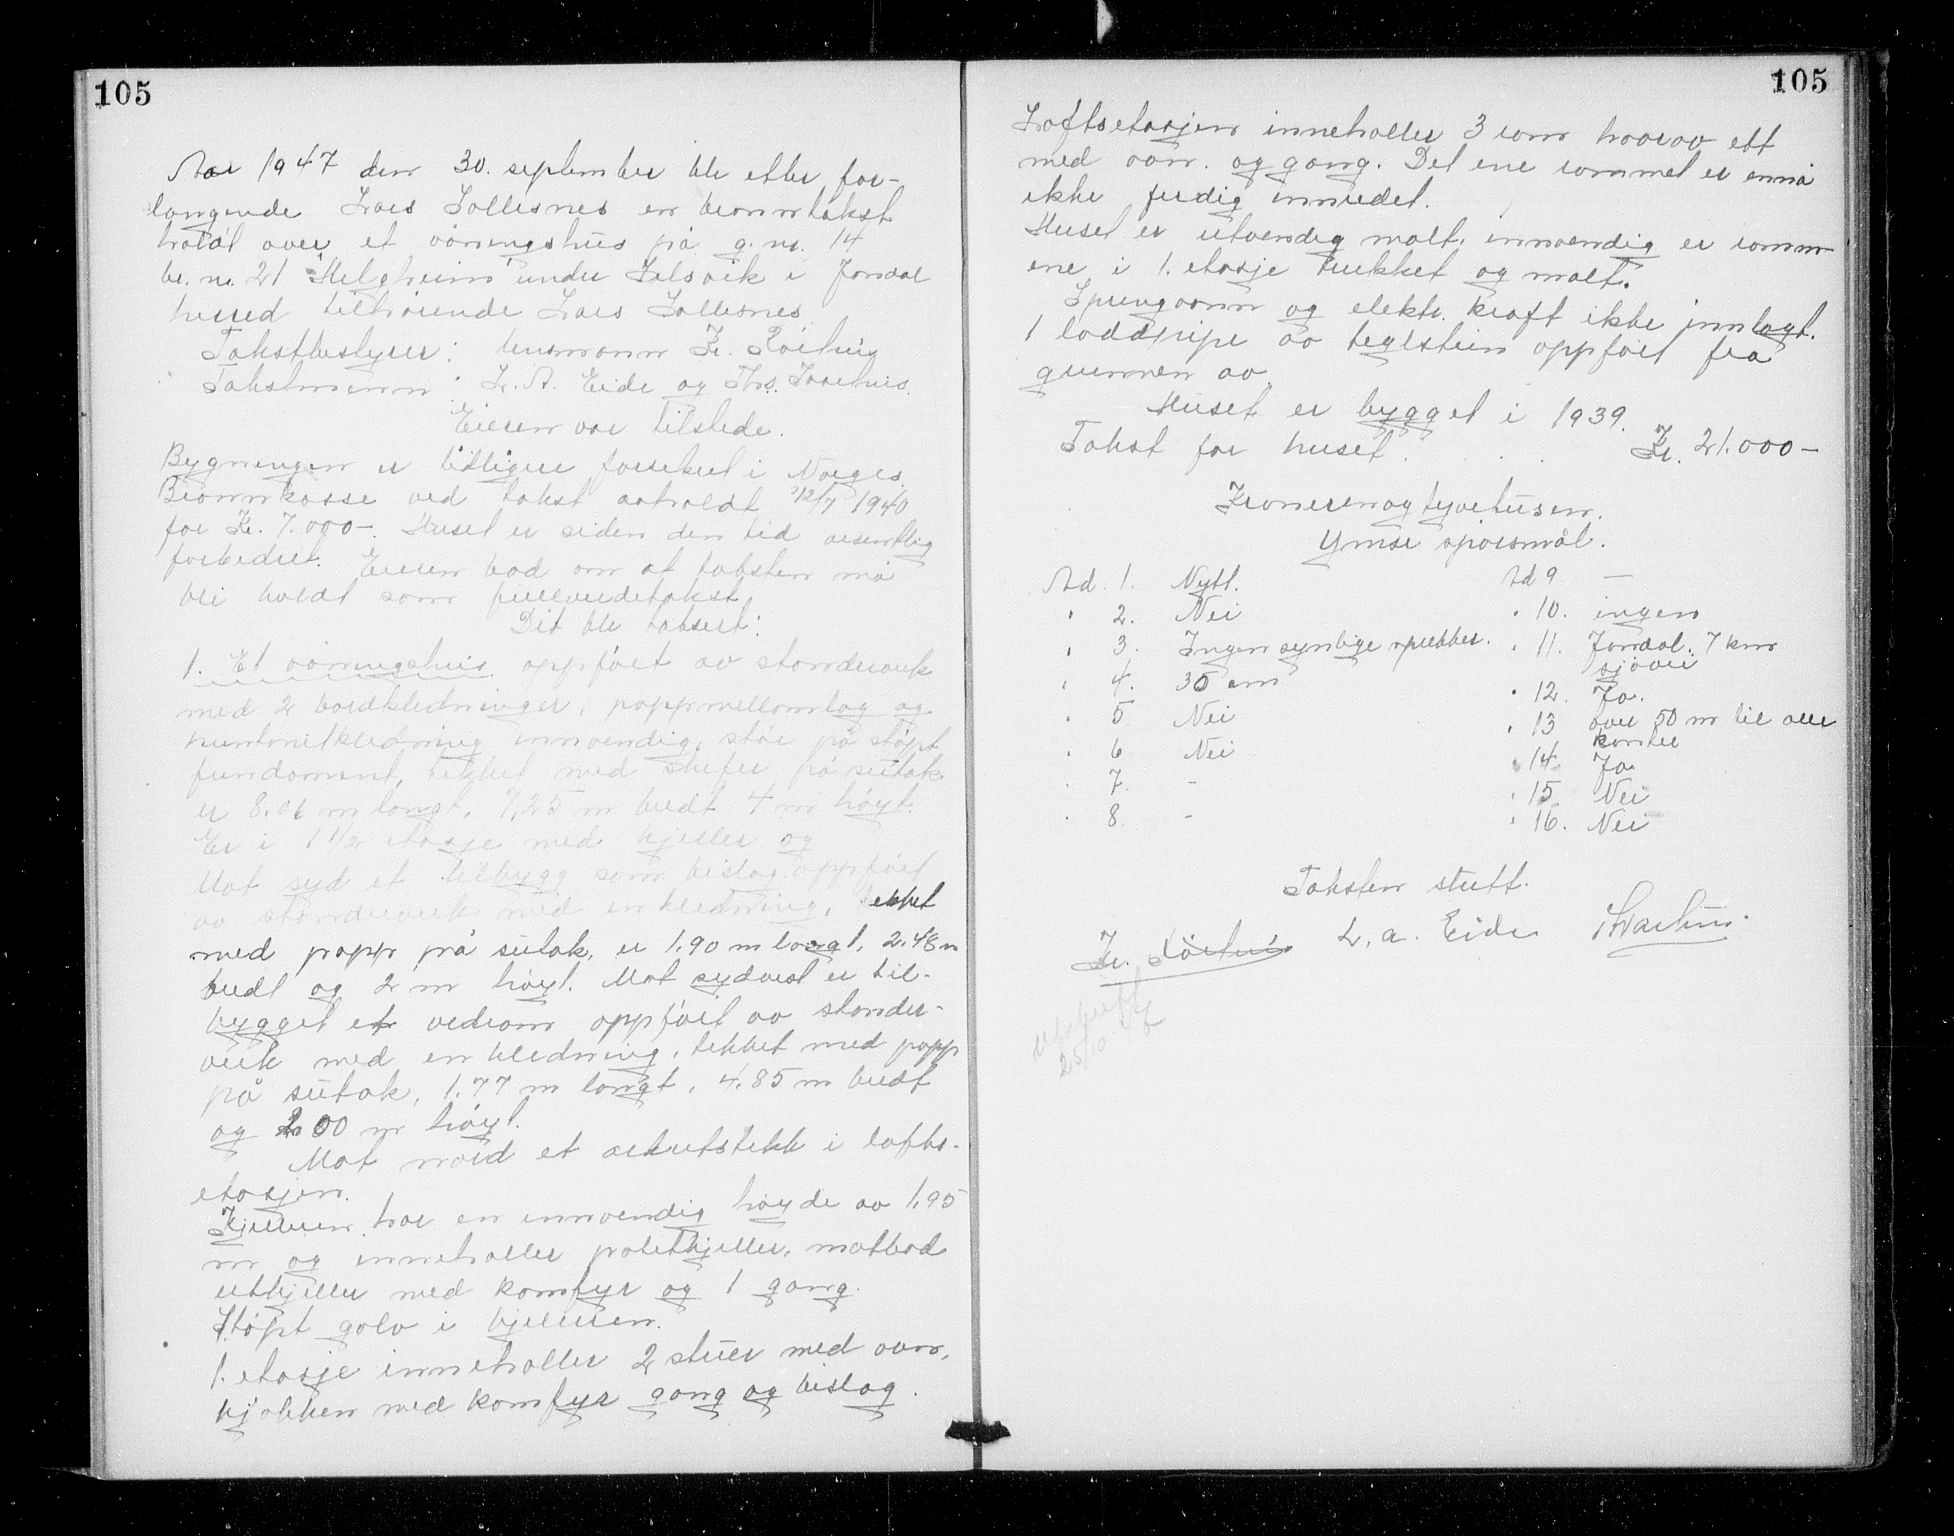 105
Aar 1947 den 30. september ble etter for-
langende Lars Sollesnes en branntakst
holdt over et våningshus på g.nr. 14
br.nr. 21 "Helgheim" under Solsvik i Jondal
herred tilhørende Lars Sollesnes
Takstbestyrer: lensmann Kr.
Takstmenn: L. A. Eide og Ths.
Eieren var tilstede.
Bygningen er tidligere forsikret i Norges
Brannkasse ved takst avholdt 12/7 1940
for Kr. 7.000-. Huset er siden den tid vesentlig
forbedret. Eieren bad om at taksten må
bli holdt som fullverditakst.
Det ble taksert:
1. Et våningshus oppført av stenderverk
med 2 bordkledninger, pappmellomlag og
huntonitkledning innvendig, står på støpt
fundament, tekket med skifer på sutak
er 8.06 m langt, 7,25 m bredt 4 m høyt.
Er i 1 1/2 etasje med kjeller og
Mot syd et tilbygg som bislag oppført
av stenderverk med en kledning, tekket
med papp på sutak, er 1.90 m langt, 2.48 m
bredt og 2 m høyt. Mot sydvest er til-
bygget et vedrom oppført av stender-
verk med en kledning, tekket med papp
på sutak, 1.77 m langt, 4.85 m bredt
og 2.00 m høyt.
Mot nord et arkutstikk i lofts-
etasjen.
Kjelleren har en innvendig høyde av 1,95
m og inneholler potetkjeller, matbod
utkjeller med komfyr og 1 gang.
Støpt golv i kjelleren.
1. etasje inneholler 2 stuer med ovn,
kjøkken med komfyr gang og bislag.
105
Loftsetasjen inneholler 3 rom hvorav ett
med ovn. og gang. Det ene rommet er ennå
ikke ferdig innredet.
Huset er utvendig malt, innvendig er romm-
ene i 1. etasje trukket og malt.
Springvann og elektr. kraft ikke innlagt.
1 loddpipe av teglstein oppført fra
grunnen av.
Huset er bygget i 1939.
Takst for huset . . . Kr. 21.000-
Kronerenogtyvetusen.
Ymse spørsmål.
Ad. 1. Nytt. Ad 9. —
" 2. Nei " 10. ingen
" 3. Ingen synlige sprekker. " 11. Jondal. 7 km
sjøvei
" 4. 35 cm " 12. Ja.
" 5. Nei " 13 over 50 m til alle
kanter
" 6. Nei " 14. Ja
" 7. - " 15. Nei
" 8. - " 16. Nei
Taksten slutt.
Kr. L. A. Eide
Utskrift
25/10